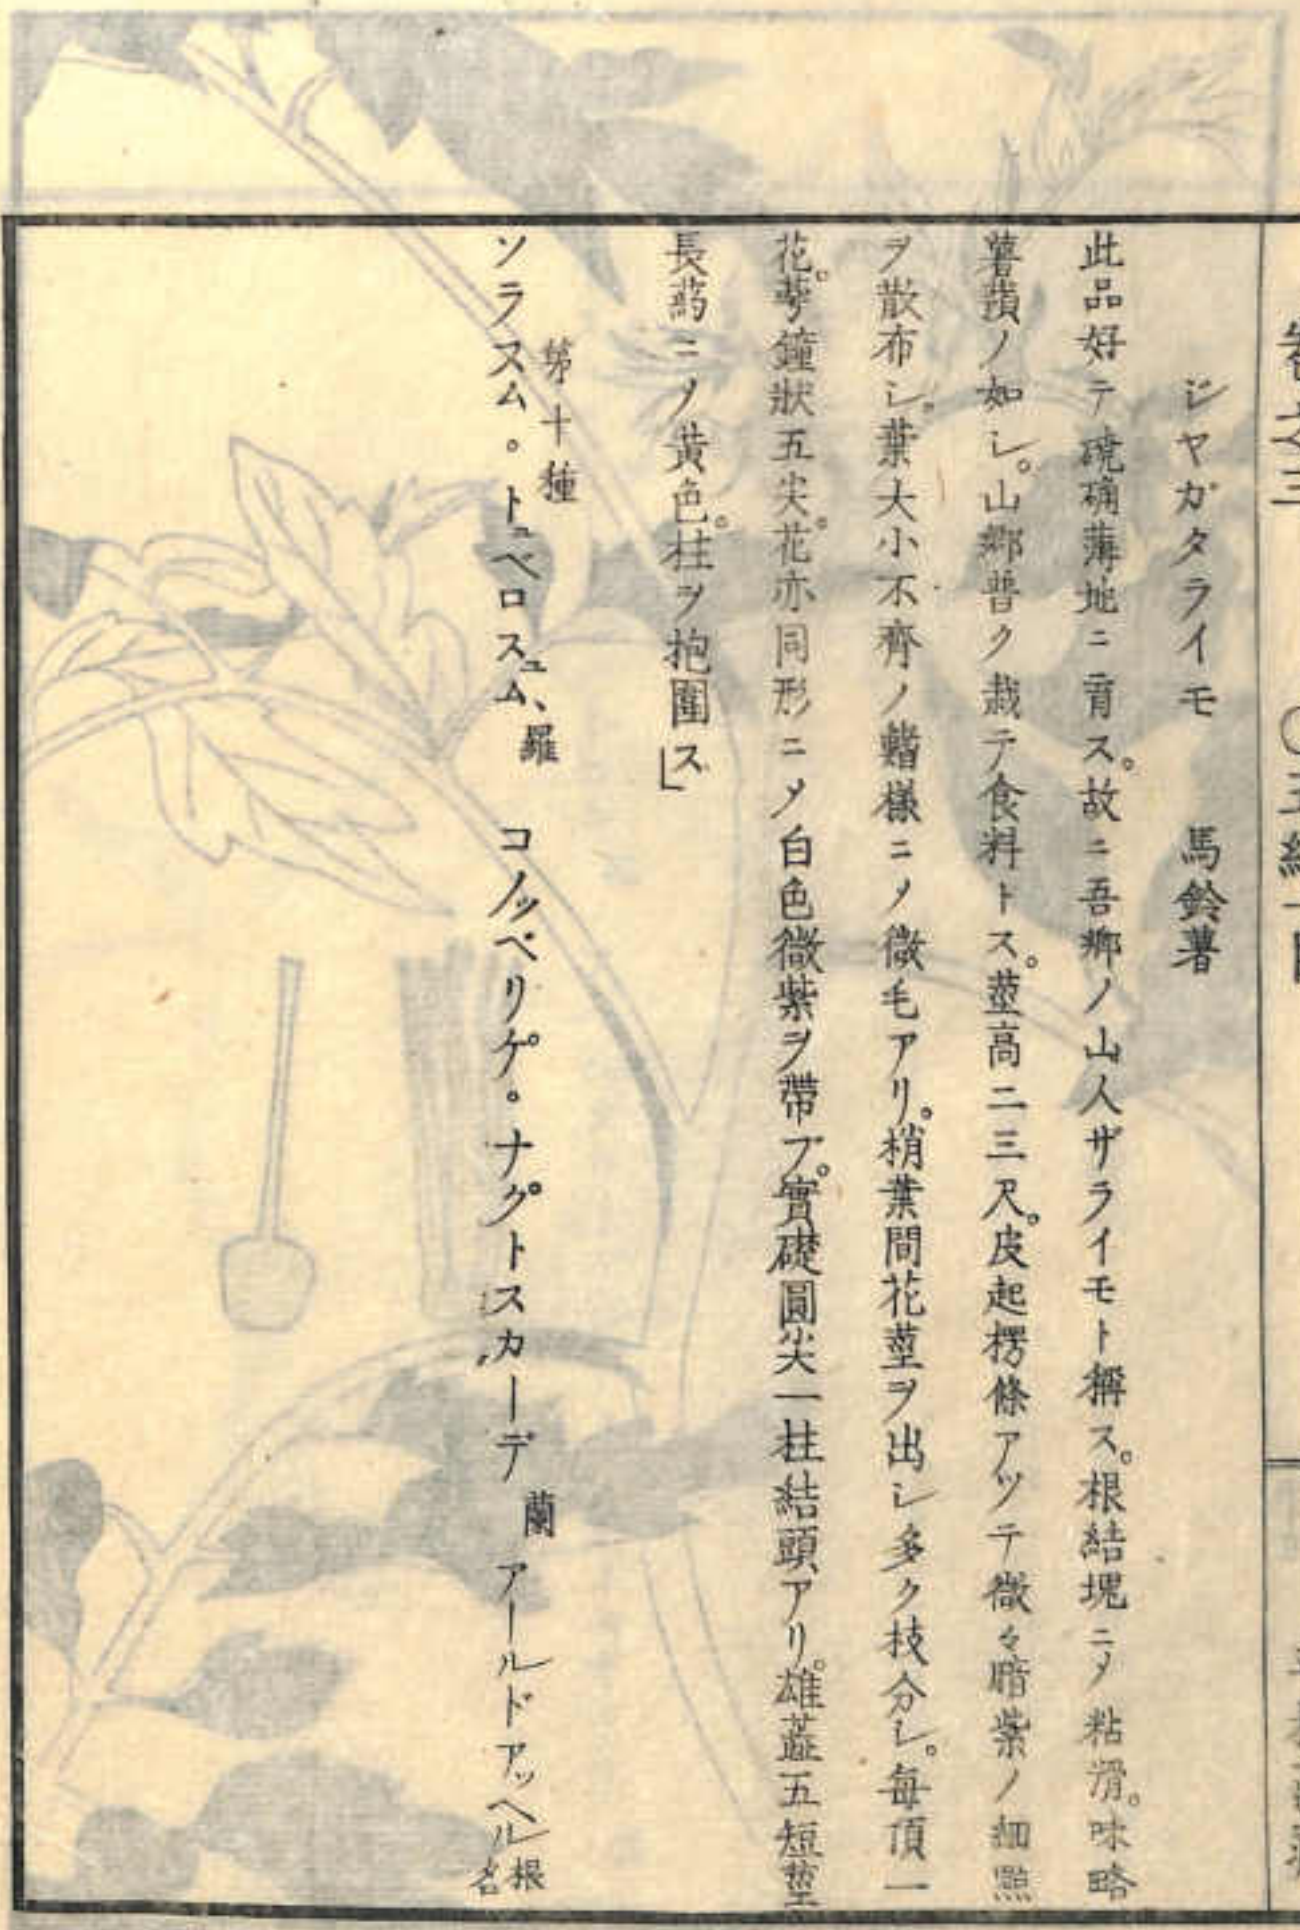 卷之三
〇五
ジヤガタライモ　馬鈴薯
此品好テ磽确薄地ニ育ス。故ニ吾郷ノ山人ザライモト稱ス。根結塊ニメ粘滑。味略
薯蕷ノ如シ。山郷普ク栽テ食料トス。莖高二三尺。皮起楞條アツテ微々暗紫ノ細點
ヲ散布シ。葉大小不齊ノ鰭様ニメ微毛アリ。梢葉間花莖ヲ出シ多ク枝分シ。每頂一
花。萼鐘狀五尖。花亦同形ニメ白色微紫ヲ帶フ。實礎圓尖一柱結頭アリ。雄蘂五短莖
長葯ニメ黄色。柱ヲ抱圍ス」
第十種
ソラスム。トュベロスュム、羅　コノッペリゲ。ナグトスカーデ　蘭　アールドアッヘル根名